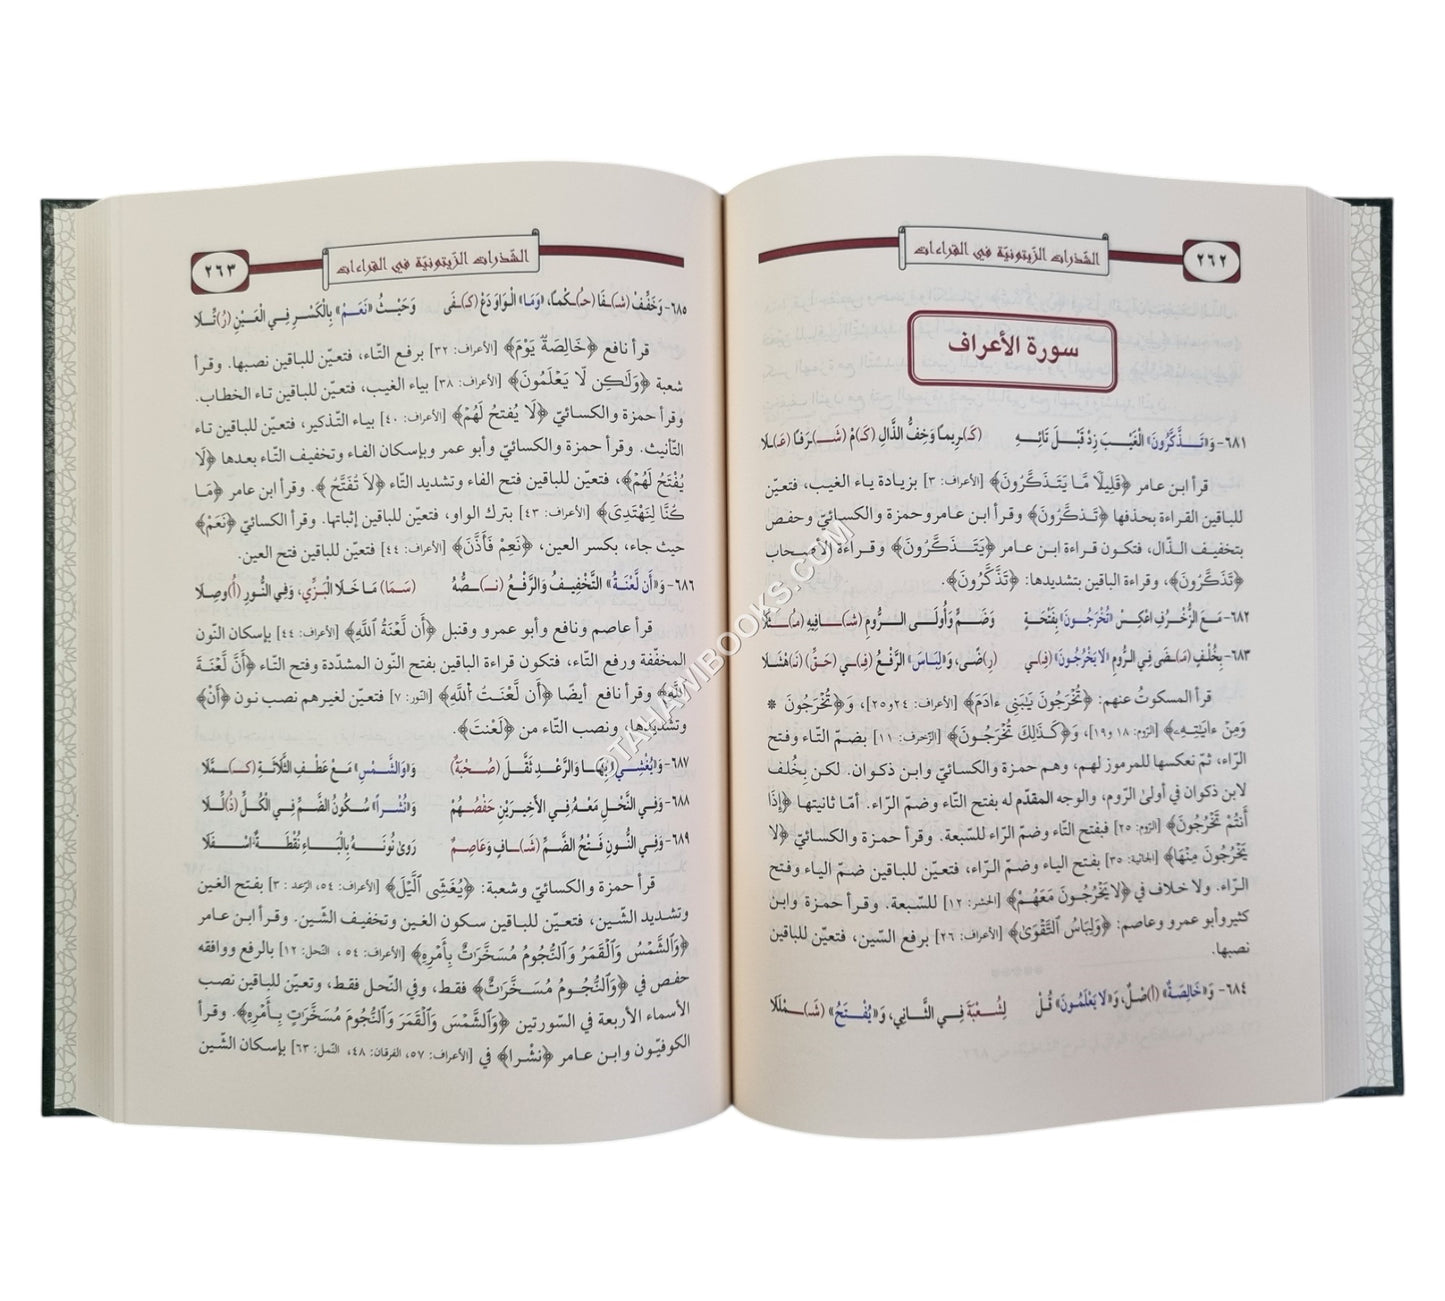 الشذرات الزيتونية في القراءات
٢٦٢
سورة الأعراف
٦٨١- وَ«تَذَّكَّرُونَ» الْغَيْبَ زِدْ قَبْلَ تَائِهِ (كَـ)ـرِيماً وَخِفُّ الذَّالِ (كَـ)ـمْ (شَـ)ـرَفاً (عَـ)ـلَا
قرأ ابن عامر ﴿قَلِيلًا مَّا يَتَذَكَّرُونَ﴾ [الأعراف: ٣] بزيادة ياء الغيب، فتعيّن
للباقين القراءة بحذفها ﴿تَذكَّرُونَ﴾ وقرأ ابن عامر وحمزة والكسائيّ وحفص
بتخفيف الذّال، فتكون قراءة ابن عامر ﴿يَتَذكَّرُونَ﴾ وقراءة الأصحاب
﴿تَذَكَّرُونَ﴾، وقراءة الباقين بتشديدها: ﴿تَذَّكَّرُونَ﴾.
٦٨٢- مَعَ الزُّخْرُفِ اعْكِسْ «تُخْرَجُونَ» بِفَتْحَةٍ وَضَمٍّ وَأُولَى الرُّومِ (شَـ)ـافِيهِ (مُـ)ـثِّلَا
٦٨٣- بِخُلْفٍ (مَـ)ـضَى فِي الرُّومِ «لَا يَخْرُجُونَ» (فِـ)ـي (رِ)ضًى، وَ«لِبَاسَ» الرَّفْعُ (فِـ)ـي (حَقِّ) (نَـ)ـهْشَلَا
قرأ المسكوتُ عنهم: ﴿تُخْرَجُونَ يَٰبَنِي ءَادَمَ﴾ [الأعراف: ٢٤ و٢٥]، و﴿تُخْرَجُونَ *
وَمِنْ ءَايَٰتِهِ﴾ [الرّوم: ١٨ و١٩]، و﴿كَذَٰلِكَ تُخْرَجُونَ﴾ [الزّخرف: ١١] بضمّ التّاء وفتح
الرّاء، ثمّ تعكسها للمرموز لهم، وهم حمزة والكسائيّ وابن ذكوان. لكن بِخُلف
لابن ذكوان في أولىٰ الرّوم، والوجه المقدّم له بفتح التّاء وضمّ الرّاء. أمّا ثانيتها ﴿إِذَا
أَنتُمْ تَخْرُجُونَ﴾ [الرّوم: ٢٥] فبفتح التّاء وضمّ الرّاء للسّبعة. وقرأ حمزة والكسائيّ ﴿لَا
يَخْرُجُونَ مِنْهَا﴾ [الجاثية: ٣٥] بفتح الياء وضمّ الرّاء، فتعيّن للباقين ضمّ الياء وفتح
الرّاء. ولا خلاف في ﴿لَا يَخْرُجُونَ مَعَهُمْ﴾ [الحشر: ١٢] للسّبعة. وقرأ حمزة وابن
كثير وأبو عمرو وعاصم: ﴿وَلِبَاسُ التَّقْوَىٰ﴾ [الأعراف: ٢٦] برفع السّين، فتعيّن للباقين
نصبها.
٦٨٤- وَ«خَالِصَةٌ» (أَ)صْلٌ، وَ«لَا يَعْلَمُونَ» قُلْ لِشُعْبَةَ فِي الثَّانِي، وَ«يُفْتَحُ» (شَـ)ـمْلَلَا
الشذرات الزيتونية في القراءات
٢٦٣
٦٨٥- وَخَفِّفْ (شَـ)ـفَا (حُـ)ـكْماً، «وَمَا» الْوَاوَ دَعْ (كَـ)ـفَى وَحَيْثُ «نَعَمْ» بِالْكَسْرِ فِي الْعَيْنِ (رُ)تِّلَا
قرأ نافع ﴿خَالِصَةٌ يَوْمَ﴾ [الأعراف: ٣٢] برفع التّاء، فتعيّن للباقين نصبها. وقرأ
شعبة ﴿وَلَٰكِن لَّا يَعْلَمُونَ﴾ [الأعراف: ٣٨] بياء الغيب، فتعيّن للباقين تاء الخطاب.
وقرأ حمزة والكسائيّ ﴿لَا يُفْتَحُ لَهُمْ﴾ [الأعراف: ٤٠] بياء التّذكير، فتعيّن للباقين تاء
التّأنيث. وقرأ حمزة والكسائيّ وأبو عمر وبإسكان الفاء وتخفيف التّاء بعدها ﴿لَا
يُفْتَحُ لَهُمْ﴾، فتعيّن للباقين فتح الفاء وتشديد التّاء ﴿لَا تُفَتَّحُ﴾. وقرأ ابن عامر ﴿مَا
كُنَّا لِنَهْتَدِيَ﴾ [الأعراف: ٤٣] بترك الواو، فتعيّن للباقين إثباتها. وقرأ الكسائيّ ﴿نَعِمْ﴾
حيث جاء، بكسر العين، ﴿نَعِمْ فَأَذَّنَ﴾ [الأعراف: ٤٤] فتعيّن للباقين فتح العين.
٦٨٦- وَ«أَن لَّعْنَةُ» التَّخْفِيفُ وَالرَّفْعُ (نَـ)ـصُّهُ (سَمَا) مَا خَلَا الْبَزِّي، وَفِي النُّورِ (أُ)وصِلَا
قرأ عاصم ونافع وأبو عمرو وقنبل ﴿أَن لَّعْنَةُ اللَّهِ﴾ [الأعراف: ٤٤] بإسكان النّون
المخفّفة ورفع التّاء، فتكون قراءة الباقين بفتح النّون المشدّدة وفتح التّاء ﴿أَنَّ لَّعْنَةَ
اللَّهِ﴾ وقرأ نافع أيضًا ﴿أَن لَّعْنَتُ اللَّهِ﴾ [النّور: ٧] فتعيّن لغيرهم نصب نون ﴿أَنْ﴾
وتشديدها، ونصب التّاء من ﴿لَعْنتَ﴾.
٦٨٧- وَ«يُغْشِي» بِهَا وَالرَّعْدِ ثَقَّلَ (صُحْبَةٌ) وَ«وَالشَّمْسِ» مَعْ عَطْفِ الثَّلَاثَةِ (كَـ)ـمَّلَا
٦٨٨- وَفِي النَّحْلِ مَعْهُ فِي الْأَخِيرَيْنِ حَفْصُهُمْ وَ«نُشْراً» سُكُونُ الضَّمِّ فِي الْكُلِّ (ذُ)لِّلَا
٦٨٩- وَفِي النُّونِ فَتْحُ الضَّمِّ (شَـ)ـافٍ وَعَاصِمٌ رَوَى نُونَهُ بِالْبَاءِ نُقْطَةٌ اسْفَلَا
قرأ حمزة والكسائيّ وشعبة: ﴿يُغَشِّي الَّيْلَ﴾ [الأعراف: ٥٤، الرّعد: ٣] بفتح الغين
وتشديد الشّين، فتعيّن للباقين سكون الغين وتخفيف الشّين. وقرأ ابن عامر
﴿وَالشَّمْسُ وَالْقَمَرُ وَالنُّجُومُ مُسَخَّرَاتٌ بِأَمْرِهِ﴾ [الأعراف: ٥٤، النّحل: ١٢] بالرفع ووافقه
حفص في ﴿وَالنُّجُومُ مُسَخَّرَاتٌ﴾ فقط، وفي النّحل فقط، وتعيّن للباقين نصب
الأسماء الأربعة في السّورتين ﴿وَالشَّمْسَ وَالْقَمَرَ وَالنُّجُومَ مُسَخَّرَاتٍ بِأَمْرِهِ﴾. وقرأ
الكوفيّون وابن عامر ﴿نشْرا﴾ في [الأعراف: ٥٧، الفرقان: ٤٨، النّمل: ٦٣] بإسكان الشّين
©TAHAMIBOOKS.COM